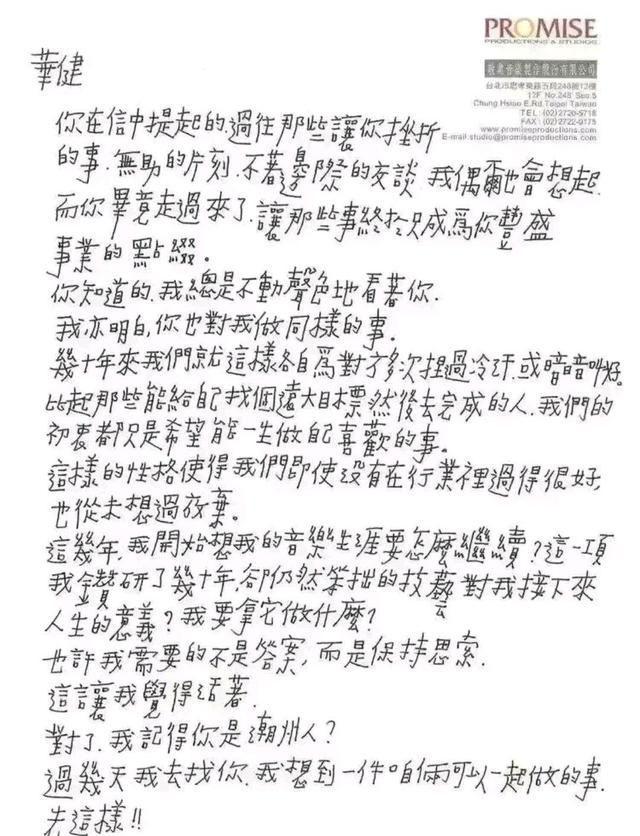 PROMISE
PRODUCTIONS & STUDIOS
敬業音樂製作股份有限公司
台北市忠孝東路五段248號12樓
12F No.248 Sec.5
Chung Hsiao E.Rd.Taipei Taiwan
TEL:(02)2720-5718
FAX:(02)2722-9175
www.promiseproductions.com
E-mail:studio@promiseproductions.com
華健
你在信中提起的.過往那些讓你挫折
的事.無助的片刻.不著邊際的交談.我偶爾也會想起.
而你畢竟走過來了.讓那些事終於只成爲你豐盛
事業的點綴。
你知道的.我總是不動聲色地看著你.
我亦明白,你也對我做同樣的事.
幾十年來我們就這樣各自爲對方多次捏過冷汗.或暗暗叫好.
比起那些能給自己找個遠大目標然後去完成的人.我們的
初衷都只是希望能一生做自己喜歡的事。
這樣的性格使得我們即使沒有在行業裡過得很好,
也從未想過放棄。
這幾年,我開始想我的音樂生涯要怎麼繼續?這一項
我鑽研了幾十年,卻仍然笨拙的技藝對我接下來
人生的意義?我要拿它做什麼?
也許我需要的不是答案,而是保持思索.
這讓我覺得活著.
對了.我記得你是潮州人?
過幾天我去找你.我想到一件咱倆可以一起做的事.
先這樣!!